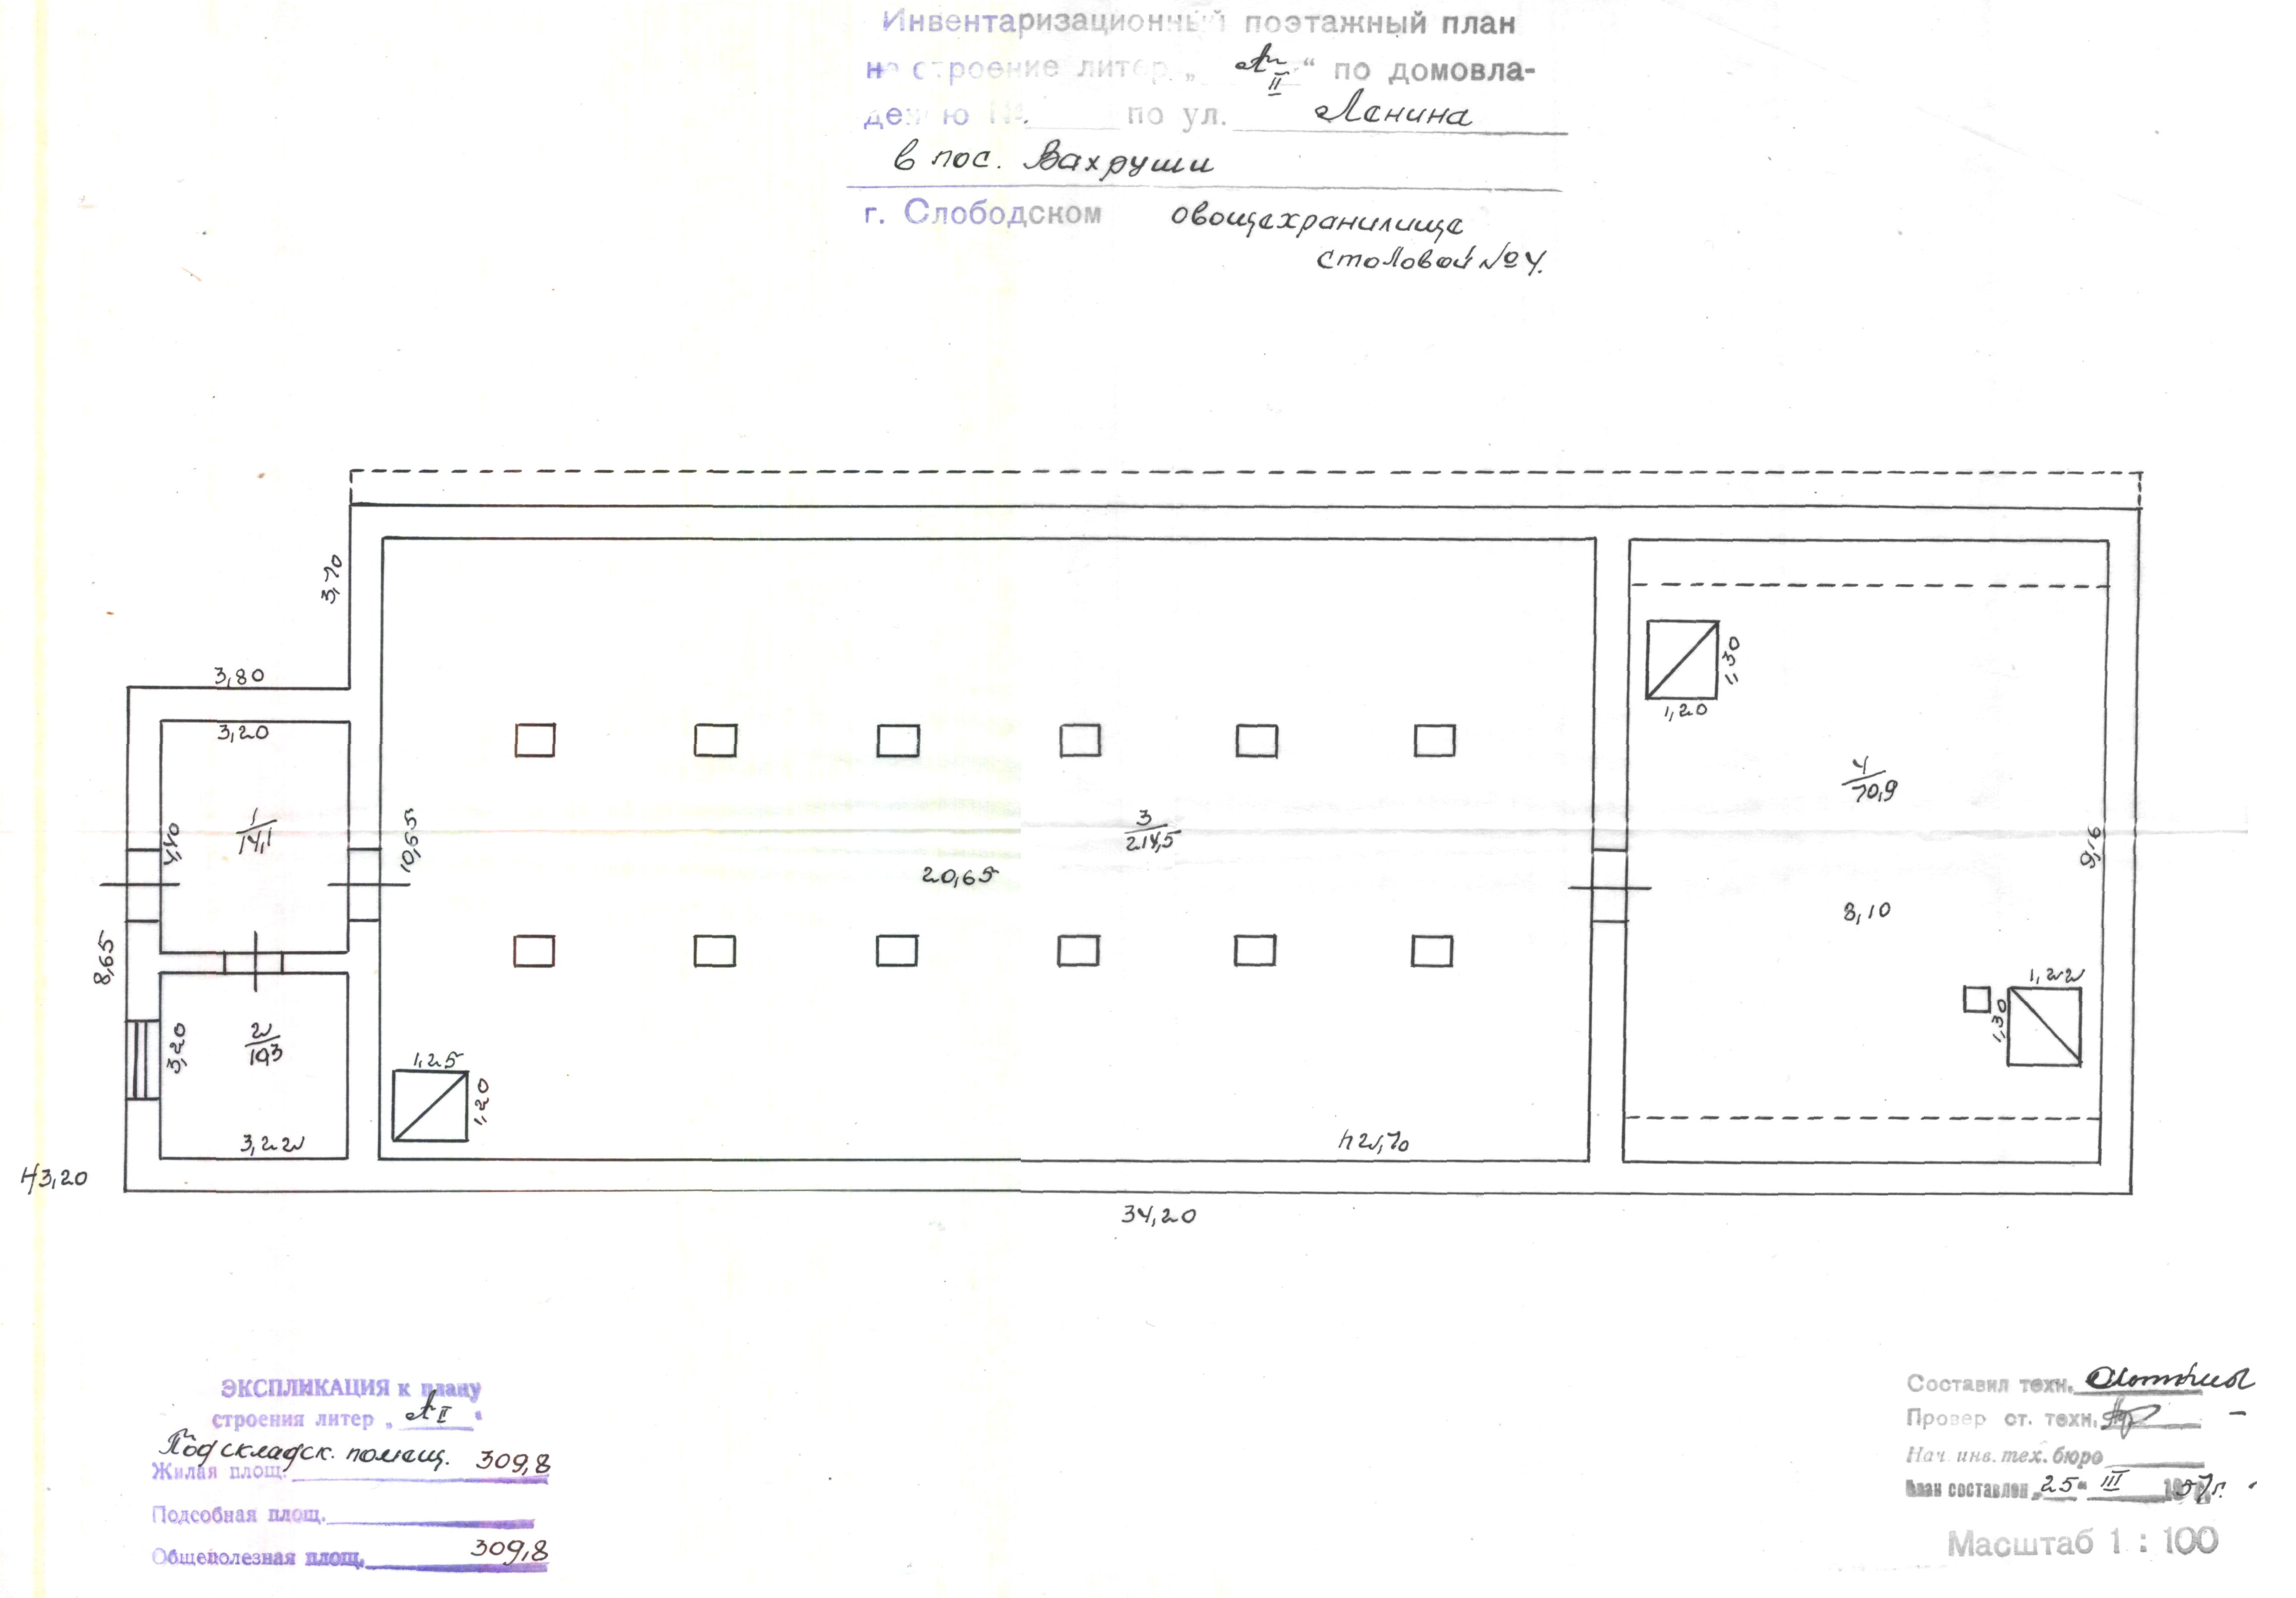 Инвентаризационный поэтажный план
на строение литер „ А II “ по домовла-
дению №. по ул. Ленина
в пос. Вахруши
г. Слободском овощехранилище
столовой № 4.
3,70
3,80
3,20
1,30
1,20
4
70,9
1
14,1
4,40
10,65
3
214,5
20,65
9,16
8,10
8,65
1,22
1,30
2
10,3
3,20
1,25
1,20
3,22
h 2,70
H 3,20
34,20
ЭКСПЛИКАЦИЯ к плану
строения литер „ А II “
Под складск. помещ. 309,8
Жилая площ.
Подсобная площ.
Общеполезная площ. 309,8
Составил техн.
Провер ст. техн.
Нач. инв. тех. бюро
План составлен „25“ III 19 г.
Масштаб 1 : 100